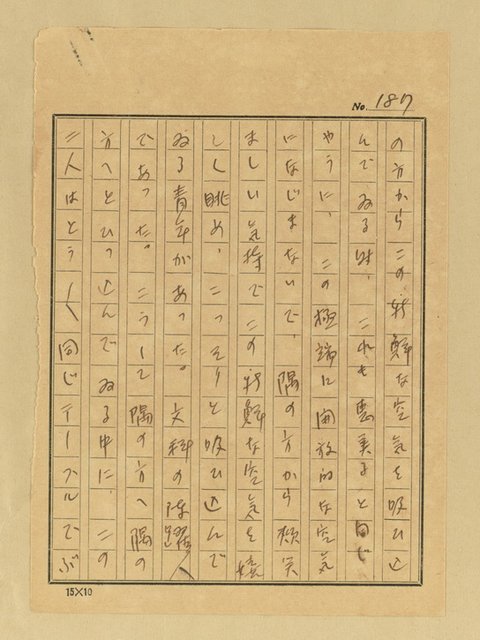 No. 187
の方からこの新鮮な空気を吸ひ込
んでゐる時、これも雲美子と同じ
やうに、この極端に開放的な空気
になじまないで、隅の方から
ましい気持でこの新鮮な空気を
しく眺め、こつそりと吸ひ込んで
ゐる青年があつた。文科の陳躍人
であつた。こうして隅の方へ隅の
方へとひつ込んでゐる中に、この
二人はとう〳〵同じテーブルでぶ
15×10